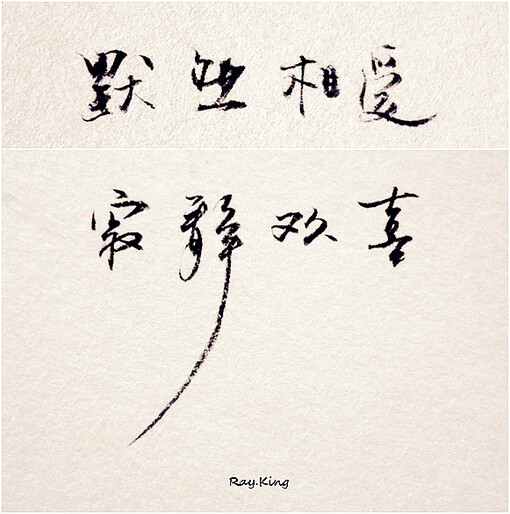 默然相爱
寂静欢喜
Ray.King